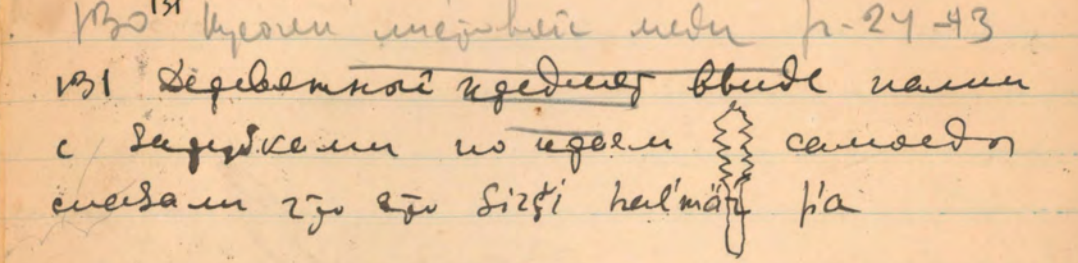 130 131 Кусочек листовой меди р-24-43
131 Деревянной предмет ввиде палки
с зарубками по краем самоеды
сказали что это